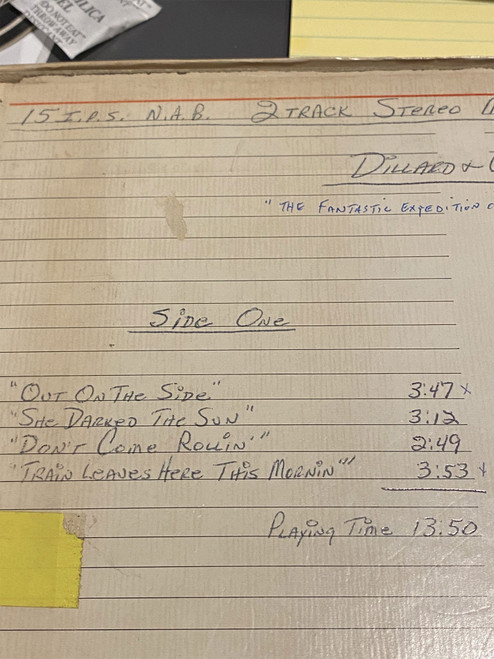 SILICA
GEL
DO NOT EAT
THROW AWAY
15 I.P.S. N.A.B. 2 TRACK STEREO
DILLARD &
"THE FANTASTIC EXPEDITION O
SIDE ONE
"OUT ON THE SIDE" 3:47 x
"SHE DARKED THE SUN" 3:12
"DON'T COME ROLLIN'" 2:49
"TRAIN LEAVES HERE THIS MORNIN'" 3:53 x
PLAYING TIME 13:50